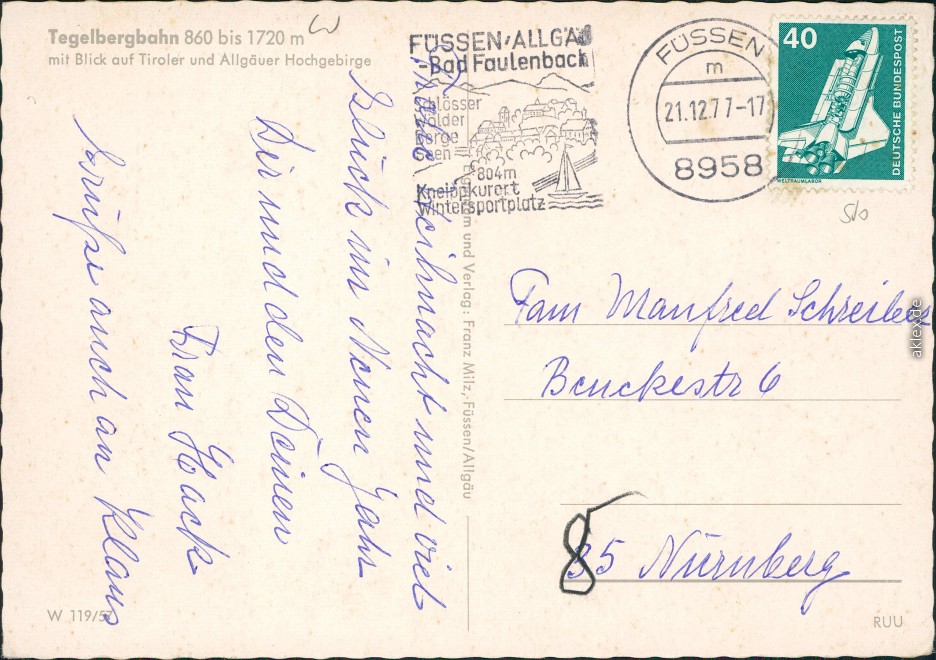 Tegelbergbahn 860 bis 1720 m
mit Blick auf Tiroler und Allgäuer Hochgebirge
FÜSSEN/ALLGÄU
-Bad Faulenbach
Schlösser
Wälder
Berge
Seen
804m
Kneippkurort
Wintersportplatz
FÜSSEN
m
21.12.77-17
8958
40
DEUTSCHE BUNDESPOST
WELTRAUMLABOR
5/0
Weihnacht und viel
Glück im Neuen Jahr
Dir und den Deinen
Frau Hack
Grüße auch an Klaus
und Verlag: Franz Milz, Füssen/Allgäu
Fam Manfred Schreiber
Beuckestr 6
85 Nürnberg
8
W 119/57
RUU
aklex.de